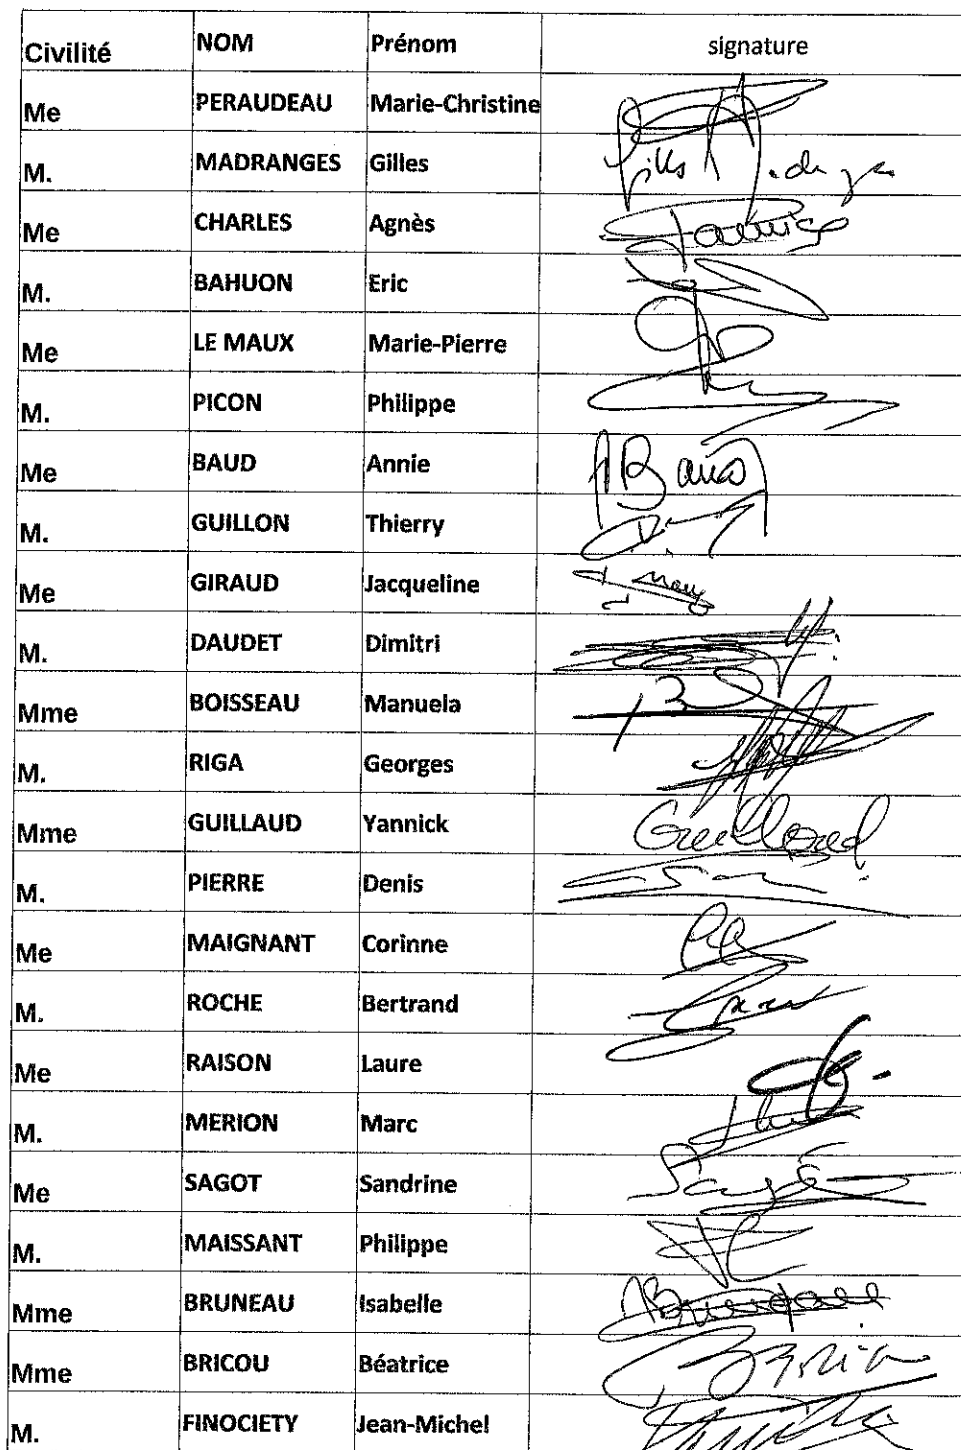 Civilité NOM Prénom signature
Me PERAUDEAU Marie-Christine
M. MADRANGES Gilles
Me CHARLES Agnès
M. BAHUON Eric
Me LE MAUX Marie-Pierre
M. PICON Philippe
Me BAUD Annie
M. GUILLON Thierry
Me GIRAUD Jacqueline
M. DAUDET Dimitri
Mme BOISSEAU Manuela
M. RIGA Georges
Mme GUILLAUD Yannick
M. PIERRE Denis
Me MAIGNANT Corinne
M. ROCHE Bertrand
Me RAISON Laure
M. MERION Marc
Me SAGOT Sandrine
M. MAISSANT Philippe
Mme BRUNEAU Isabelle
Mme BRICOU Béatrice
M. FINOCIETY Jean-Michel